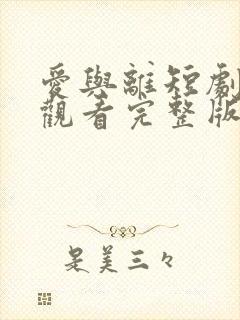 愛與離短劇
觀看完整版
是美三々